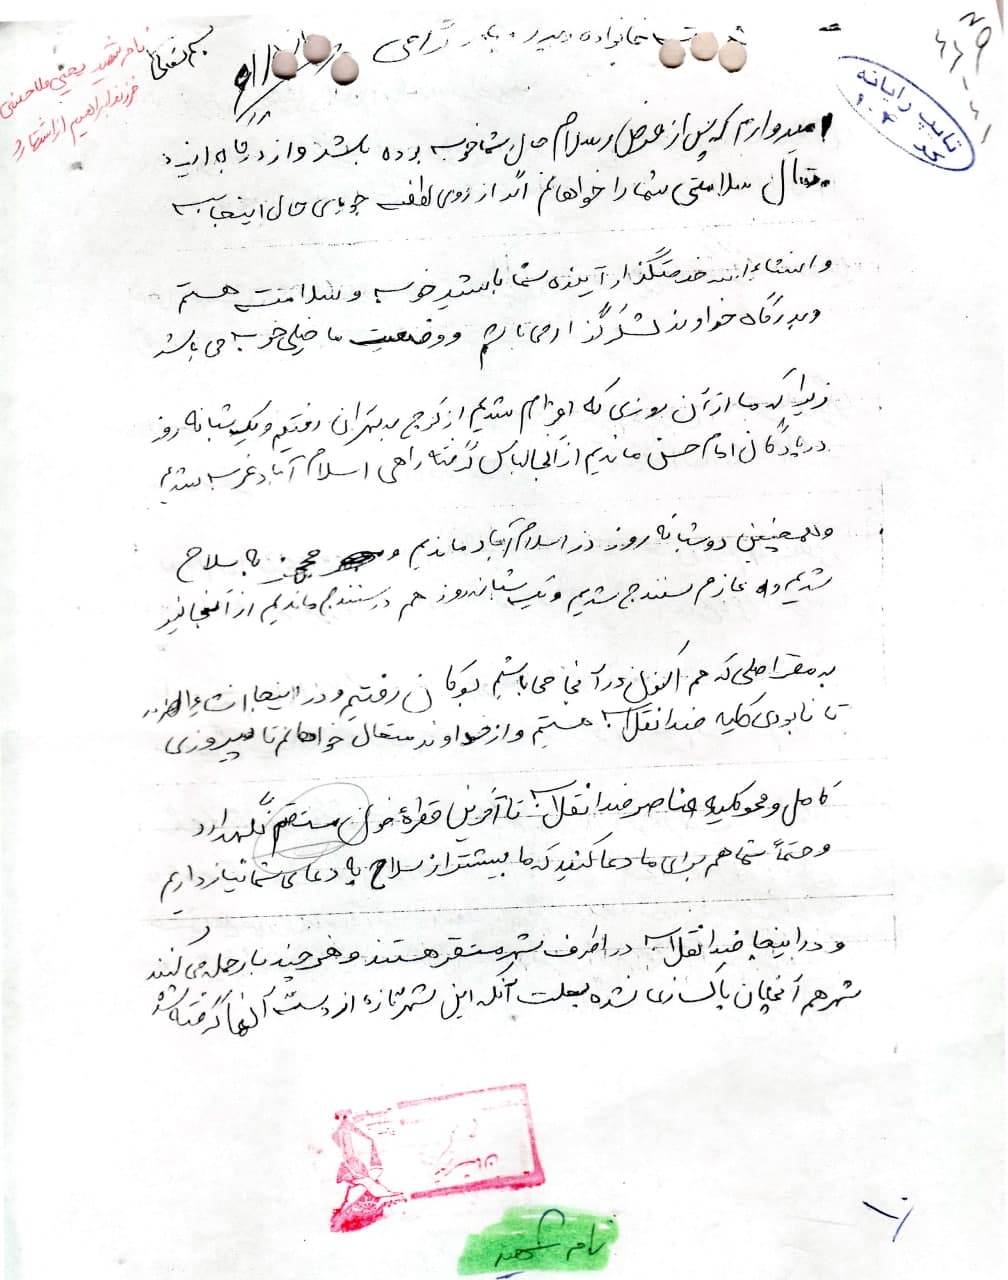 بسم تعالی
نام شهید یحیی ملاحسنی
فرزند ابراهیم از اشتهارد
تایپ رایانه
خانواده و پدر گرامی
امیدوارم که پس از عرض سلام حال شما خوب بوده باشد و از درگاه ایزد
متعال سلامتی شما را خواهانم اگر از روی لطف جویای حال اینجانب
و انشاءالله خدمتگذار آینده شما باشید خوب و سلامت هستم
و بدرگاه خداوند شکرگزار می باشم و وضعیت ما خیلی خوب می باشد
زیرا که ما از آن روزی که اعزام شدیم از کرج به تهران رفتیم و یک شبانه روز
در پادگان امام حسن ماندیم از آنجا لباس گرفته راهی اسلام آباد غرب شدیم
و همچنین دو شبانه روز در اسلام آباد ماندیم و مجهز به سلاح
شدیم و عازم سنندج شدیم و یک شبانه روز هم در سنندج ماندیم از آنجا نیز
به مقر اصلی که هم اکنون در آنجا می باشم بوکان رفتیم و در اینجا انشاءالله
تا نابودی کلیه ضد انقلاب هستیم و از خداوند متعال خواهانم تا پیروزی
کامل و محو کلیه عناصر ضد انقلاب تا آخرین قطره خون مستقیم نگهدارد
و حتماً شما هم برای ما دعا کنید که ما بیشتر از سلاح به دعای شما نیاز داریم
و در اینجا ضد انقلاب در اطراف شهر مستقر هستند و هر چند بار حمله می کنند
شهر هم آنچنان پاکسازی نشده بعلت آنکه این شهر تازه از دست آنها گرفته شده
۱
نام شهید